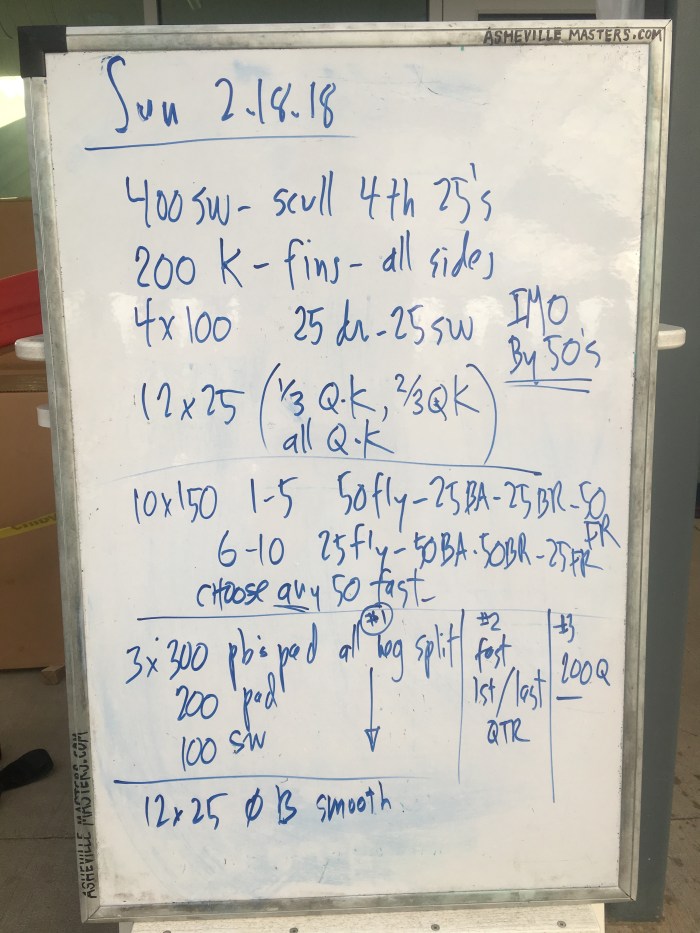 ASHEVILLE MASTERS.COM
Sun 2.18.18
400 sw - scull 4th 25's
200 K - fins - all sides
4x100 25 dr - 25 sw IMO
By 50's
12x25 (1/3 Q.K, 2/3 QK
all Q.K)
10x150 1-5 50 fly - 25 BA - 25 BR - 50
FR
6-10 25 fly - 50 BA. 50 BR - 25 FR
CHOOSE any 50 fast
3x 300 pb & pad all neg split
200 pad
100 sw
#1
#2
fast
1st/last
QTR
#3
200 Q
12x25 Ø B smooth
ASHEVILLE MASTERS.COM